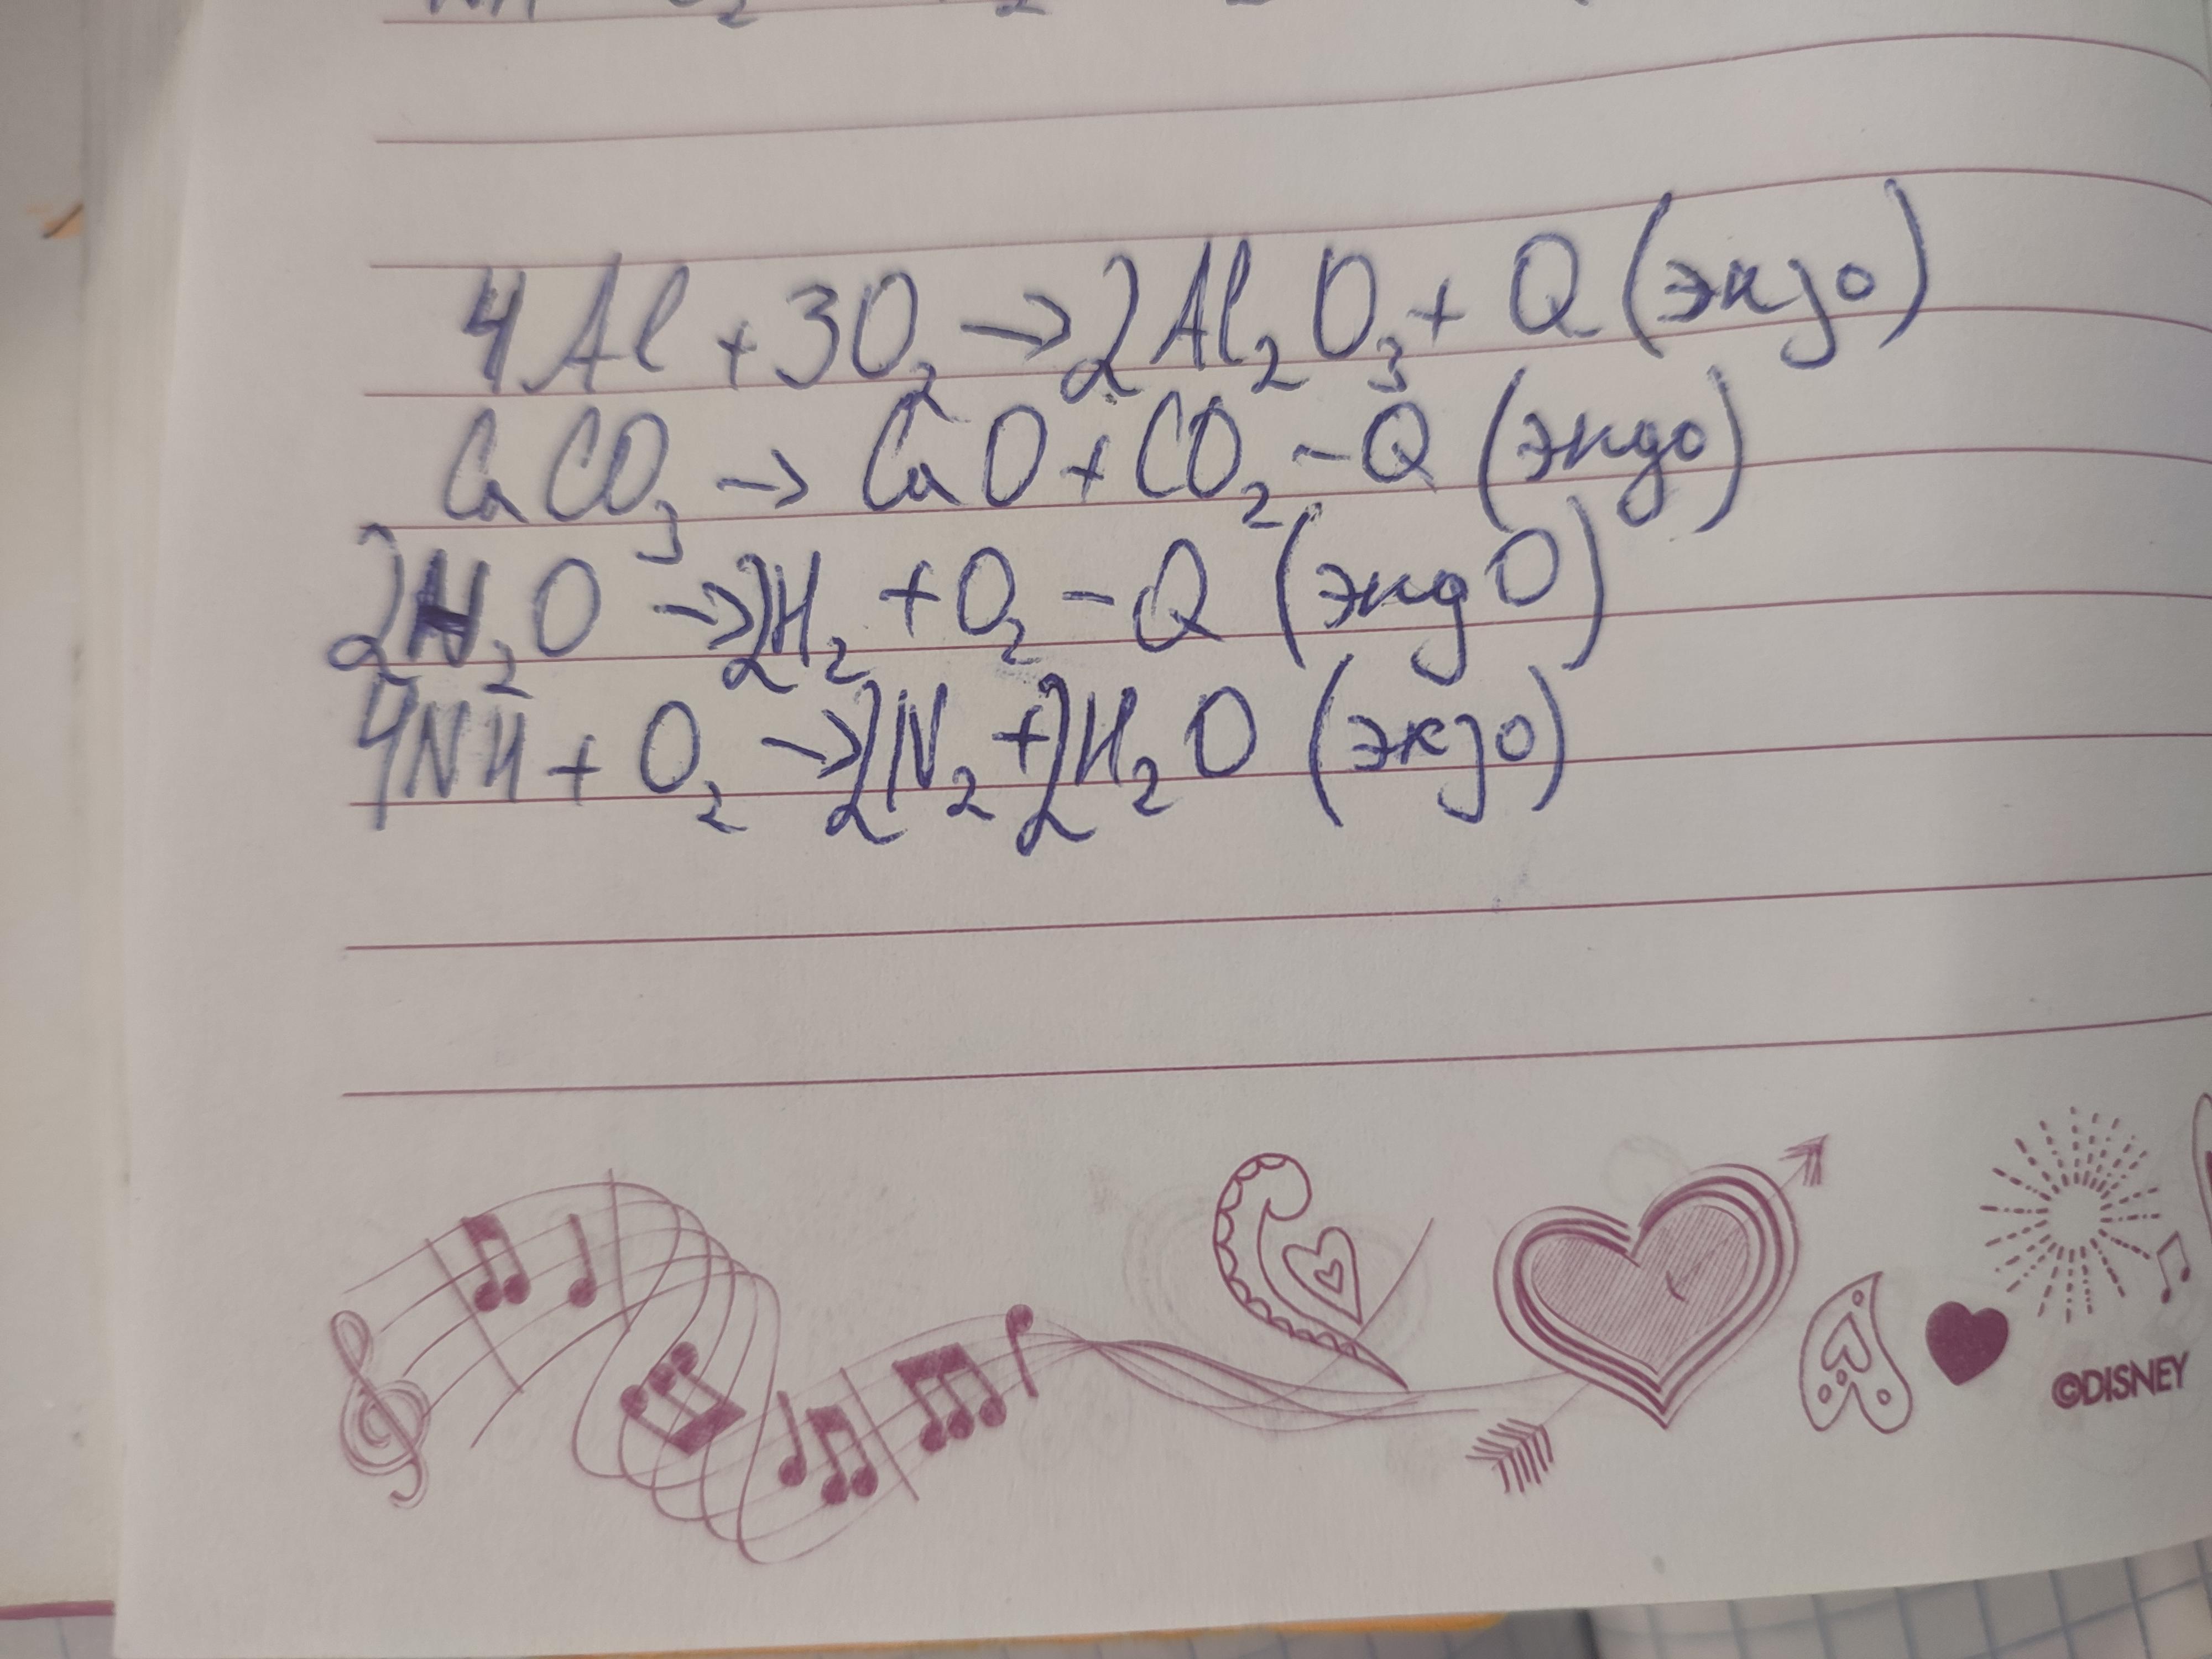 4Al + 3O₂ → 2Al₂O₃ + Q (экзо)
CaCO₃ → CaO + CO₂ - Q (эндо)
2H₂O → 2H₂ + O₂ - Q (эндО)
4NH + O₂ → 2N₂ + 2H₂O (экзо)
©DISNEY